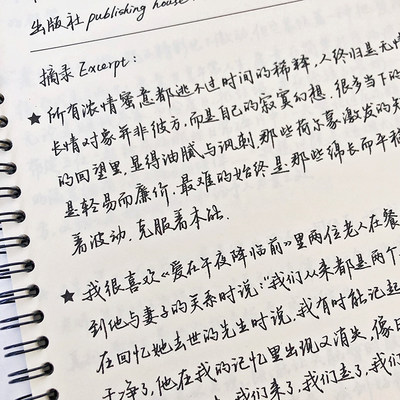 出版社 publishing house
摘录 Excerpt:
★ 所有浓情蜜意都逃不过时间的稀释,人终归是无情
长情对象并非彼方,而是自己的寂寞幻想.很多当下的
的回望里,显得油腻与讽刺.那些荷尔蒙激发的
是轻易而廉价.最难的始终是那些绵长而平
着波动.克服着本能.
★ 我很喜欢《爱在午夜降临前》里两位老人在餐
到他与妻子的关系时说:“我们从来都是两个
在回忆她去世的先生时说,我有时能记起
干净了,他在我的记忆里出现又消失,像日
我们来了,我们走了,我们